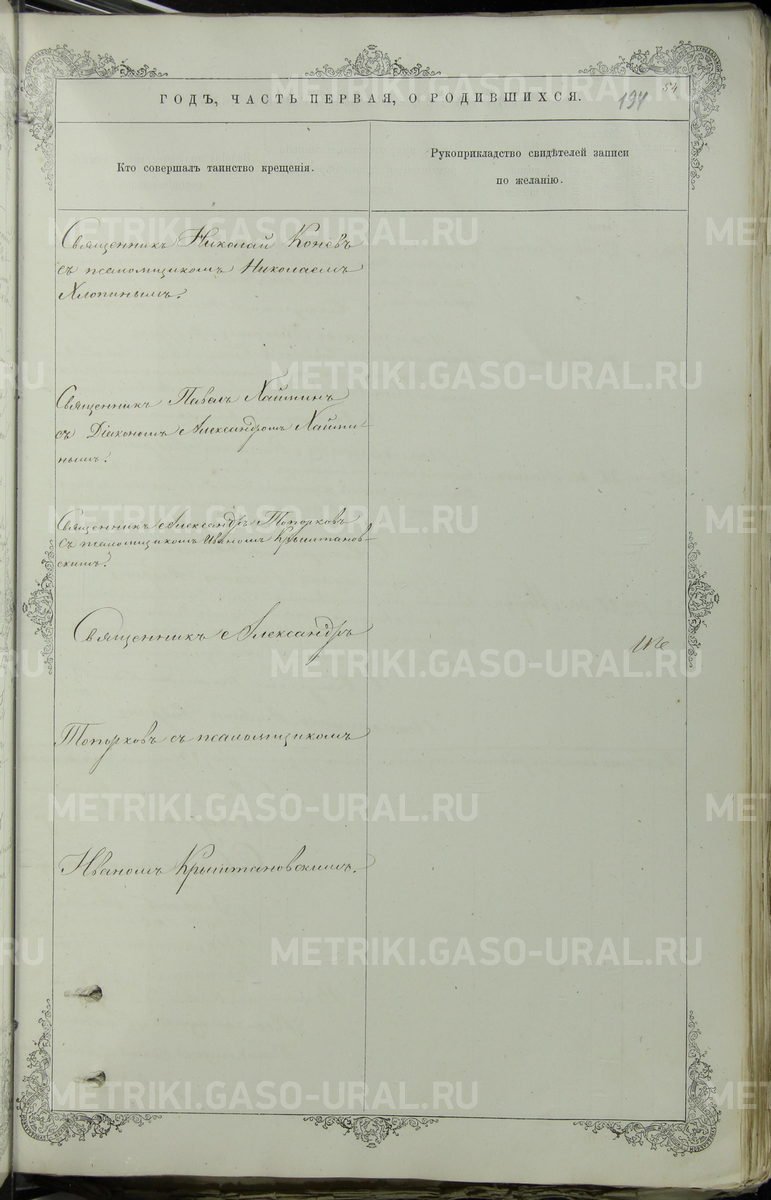 54
ГОДЪ, ЧАСТЬ ПЕРВАЯ, О РОДИВШИХСЯ. 194
Кто совершалъ таинство крещенія.
Рукоприкладство свидѣтелей записи
по желанію.
Священникъ Николай Коневъ
съ псаломщикомъ Николаемъ
Хлопинымъ.
Священникъ Павелъ
съ Діакономъ Александромъ
нымъ.
Священникъ Александръ Топорковъ
съ псаломщикомъ Иваномъ Крыштанов-
скимъ.
Священникъ Александръ
Топорковъ съ псаломщикомъ
Иваномъ Крыштановскимъ.
METRIKI.GASO-URAL.RU